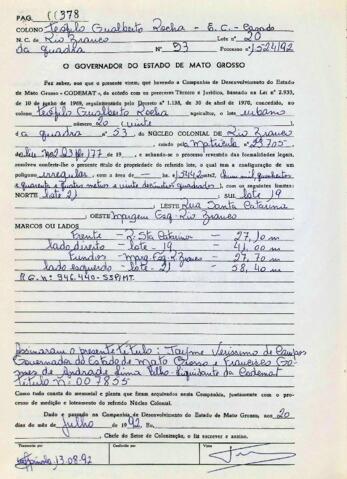 PAG. 378
COLONO Teófilo Gualberto Rocha - E. C. - Casado
N. C. de Rio Branco Lote nº 20
da quadra Nº 53 Processo nº 1524/92
O GOVERNADOR DO ESTADO DE MATO GROSSO
Faz saber, aos que o presente virem, que havendo a Companhia de Desenvolvimento do Estado
de Mato Grosso - CODEMAT -, de acordo com os preceitos Técnico e Jurídico, baseado na Lei nº 2.933,
10 de junho de 1969, regulamentado pelo Decreto nº 1.138, de 30 de abril de 1970, concedido, ao
colono Teófilo Gualberto Rocha agricultor, o lote urbano
número 20 vinte
da quadra nº 53 DO NÚCLEO COLONIAL DE Rio Branco
de 19 , e achando-se o processo revestido das formalidades legais,
resolveu conferir-lhe o presente título de propriedade do referido lote, o qual tem a configuração de um
polígono irregular com a área de
quarenta e quatro metros e vinte decímetros quadrados), com os seguintes limites:
NORTE lote 21 SUL lote 19
LESTE Rua Santa Catarina
OESTE Margem Esq. Rio Branco
MARCOS OU LADOS
Frente - R. Sta Catarina - 27,10 m
lado direito - lote - 19 - 41,00 m
Fundos - Marg. Esq. R. Branco - 27,70 m
lado esquerdo - lote - 21 - 58,40 m
R.G. n: 946.440 - SSP/MT.
Assinaram o presente título: Jayme Verissimo de Campos
Governador do Estado de Mato Grosso e Francisco Go-
mes de Andrade Lima Filho - Liquidante da Codemat
Título n: 007855
Como tudo consta do memorial e planta que foram arquivados nesta Companhia, juntamente com o pro-
cesso de medição e loteamento do referido Núcleo Colonial.
Dado e passado na Companhia de Desenvolvimento do Estado de Mato Grosso, aos 20
dias do mês de julho de 1992. Eu,
, Chefe do Setor de Colonização, o fiz escrever e assino.
Transcrito por Conferido por Visto
13.08.92